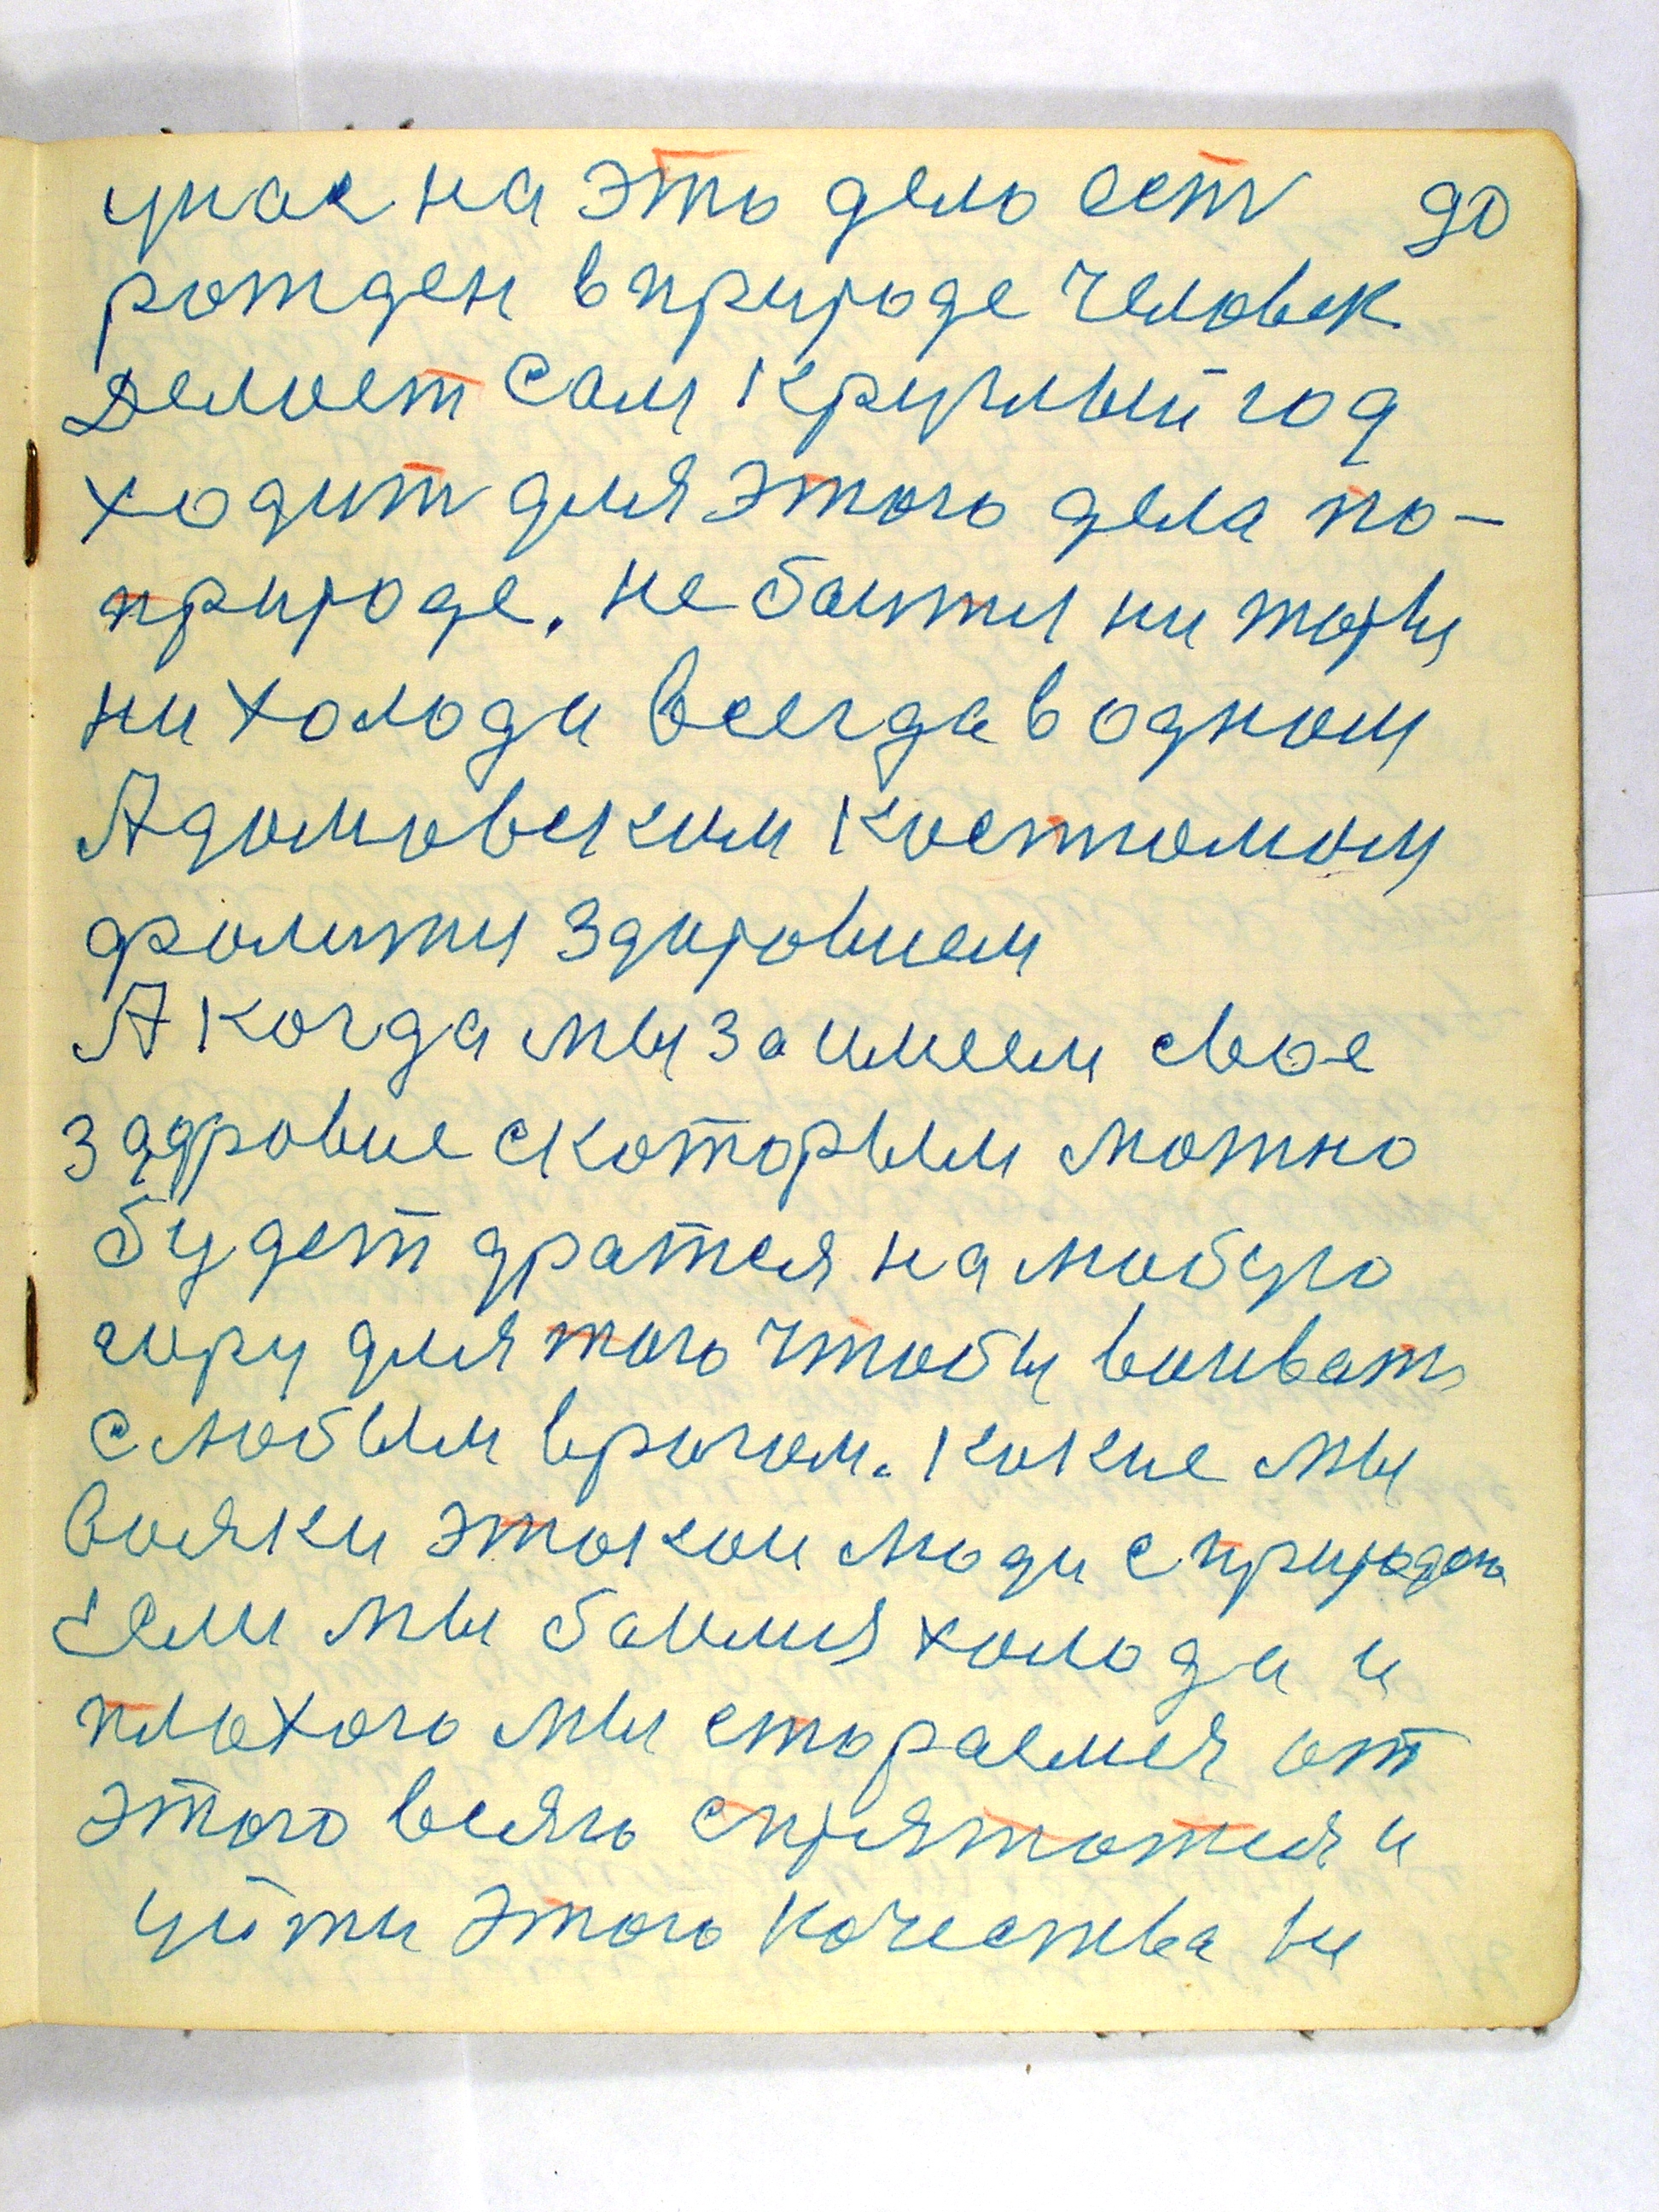 унас на это дело ест 90
рожден в природе человек
Делает сам круглый год
ходит для этого дела по-
природе. не боится ни жары
ни холода всегда в одном
Адамовским костюмом
фалится здоровием
А когда мы заимеем свое
здоровие скоторым можно
будет дратся на любую
гору для того чтобы воиват
с любым врагом. какие мы
вояки этокои люди с природои
Если мы боимся холода и
плохого мы стораемся от
этого всяго спрятатся и
уйти этого качества вы